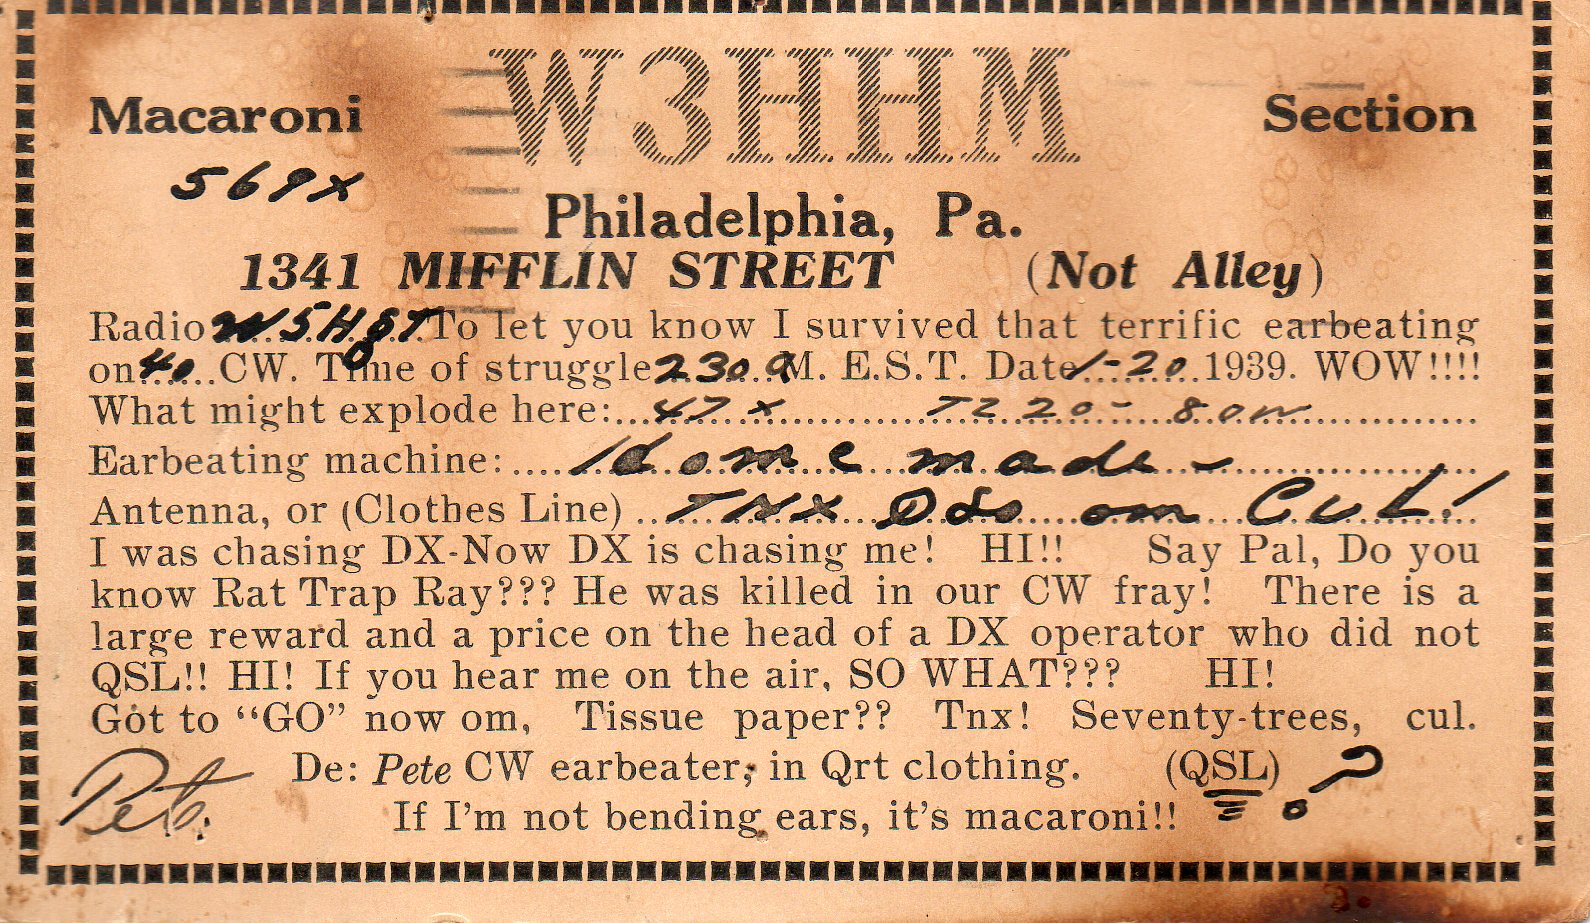 W3HHM
Macaroni Section
569X
Philadelphia, Pa.
1341 MIFFLIN STREET (Not Alley)
Radio W5HGT To let you know I survived that terrific earbeating
on 40 CW. Time of struggle 230 A M. E.S.T. Date 1-20 1939. WOW!!!!
What might explode here: 47 X TZ 20 - 80W
Earbeating machine: Home made -
Antenna, or (Clothes Line) TNX QSO om CUL!
I was chasing DX-Now DX is chasing me! HI!! Say Pal, Do you
know Rat Trap Ray??? He was killed in our CW fray! There is a
large reward and a price on the head of a DX operator who did not
QSL!! HI! If you hear me on the air, SO WHAT??? HI!
Got to “GO” now om, Tissue paper?? Tnx! Seventy-trees, cul.
De: Pete CW earbeater, in Qrt clothing. (QSL) ?
Pete
If I'm not bending ears, it's macaroni!!